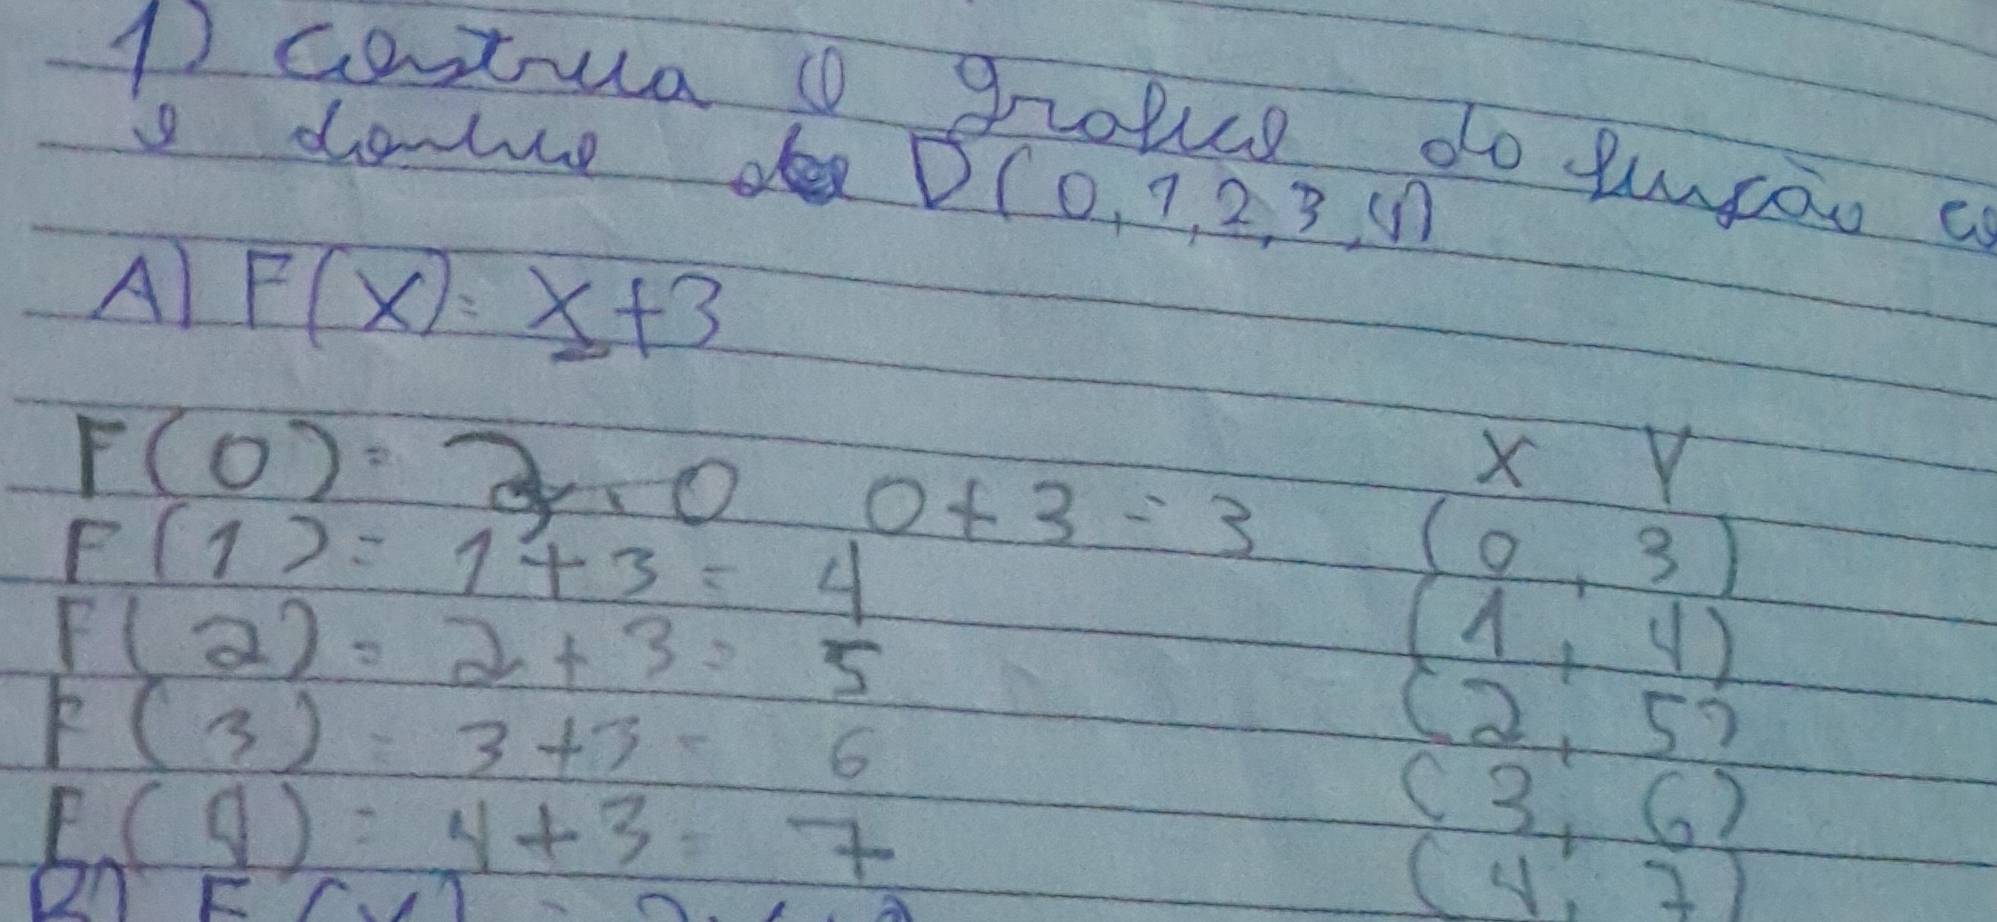 1) Construa o grafico do função co
e domínio de D(0,1,2,3,4)
A) F(X)= X+3
X Y
F(0)= 2.0 0+3=3 (0,3)
F(1)= 1+3= 4 (1,4)
F(2)= 2+3= 5 (2,5)
F(3)= 3+3= 6 (3,6)
F(4)= 4+3= 7 (4,7)
B) F(X)=